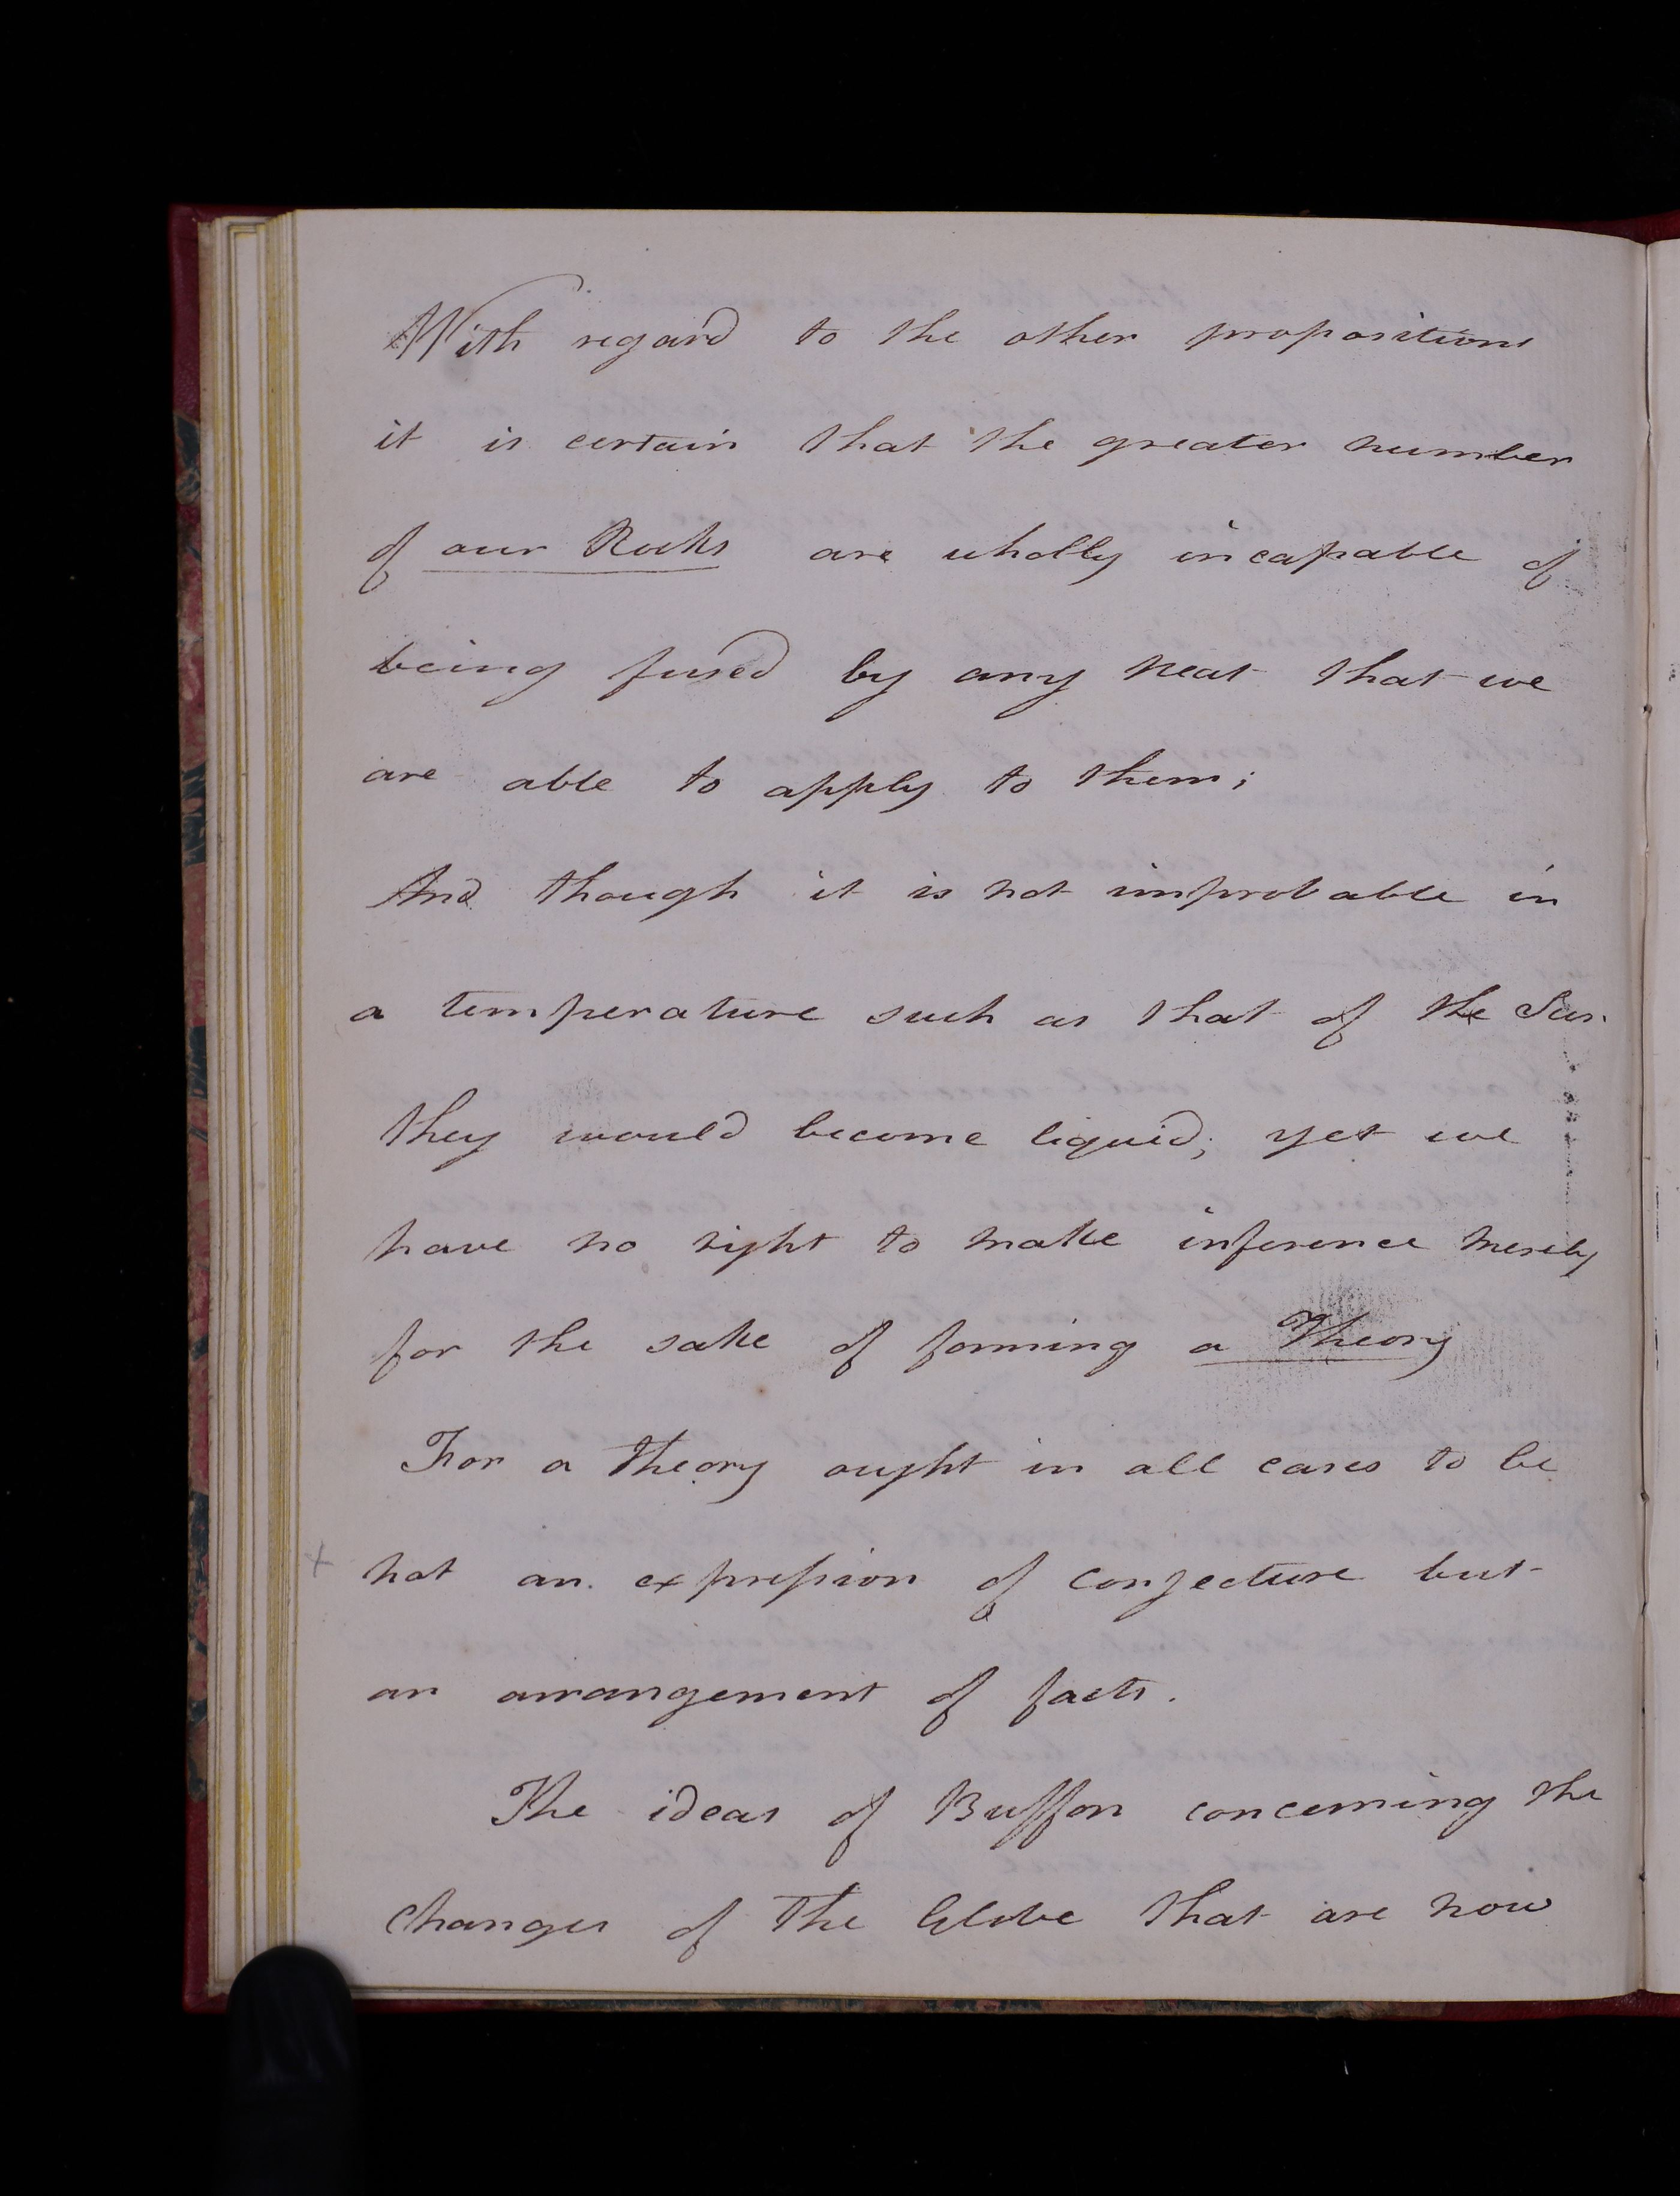 With regard to the other propositions
it is certain that the greater number
of our Rocks are wholly incapable of
being fused by any heat that we
are able to apply to them;
And though it is not improbable in
a temperature such as that of the Sun
they would become liquid; yet we
have no right to make inference merely
for the sake of forming a Theory
For a Theory ought in all cases to be
+ not an expression of conjecture but
an arrangement of facts.
The ideas of Buffon concerning the
changes of the Globe that are now